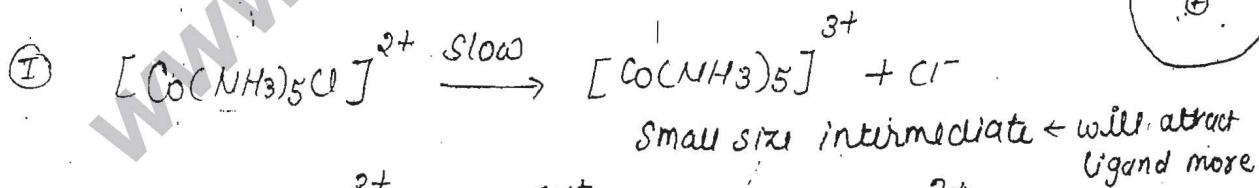 WWW
Ⓘ [Co(NH3)5Cl]²⁺ slow ⟶ [Co(NH3)5]³⁺ + Cl⁻
Small size intermediate ← will attract
ligand more